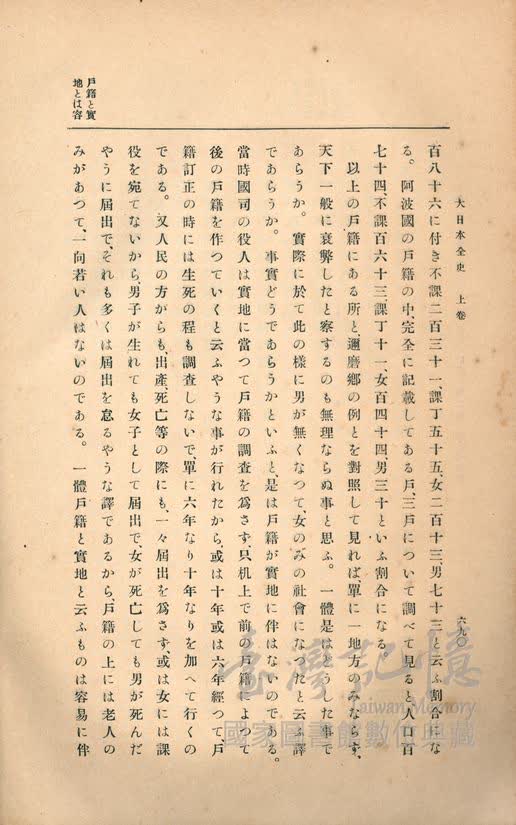 大日本全史 上卷
六九〇
戶籍と實
地とは容
百八十六に付き不課二百三十一、課丁五十五、女二百十三、男七十三と云ふ割合にな
る。 阿波國の戶籍の中、完全に記載してある戶、三戶について調べて見ると人口百
七十四、不課百六十三課丁十一、女百四十四、男三十といふ割合になる。
以上の戶籍にある所と、邇磨鄕の例とを對照して見れば、單に一地方のみならず、
天下一般に衰弊したと察するのも無理ならぬ事と思ふ。 一體是はどうした事で
あらうか。 實際に於て此の樣に男が無くなつて、女のみの社會になつたと云ふ譯
であらうか。 事實どうであらうかといふと、是は戶籍が實地に伴はないのである。
當時國司の役人は實地に當つて戶籍の調査を爲さず、只机上で前の戶籍によつて
後の戶籍を作つていくと云ふやうな事が行れたから、或は十年或は六年經つて、戶
籍訂正の時には生死の程も調査しないで、單に六年なり十年なりを加へて行くの
である。 又人民の方からも、出產、死亡等の際にも、一々屆出を爲さず、或は女には課
役を宛てないから男子が生れても女子として屆出で、女が死亡しても男が死んだ
やうに屆出で、それも多くは屆出を怠るやうな譯であるから、戶籍の上には老人の
みがあつて、一向若い人はないのである。 一體戶籍と實地と云ふものは容易に伴
臺灣記憶
Taiwan Memory
國家圖書館數位典藏